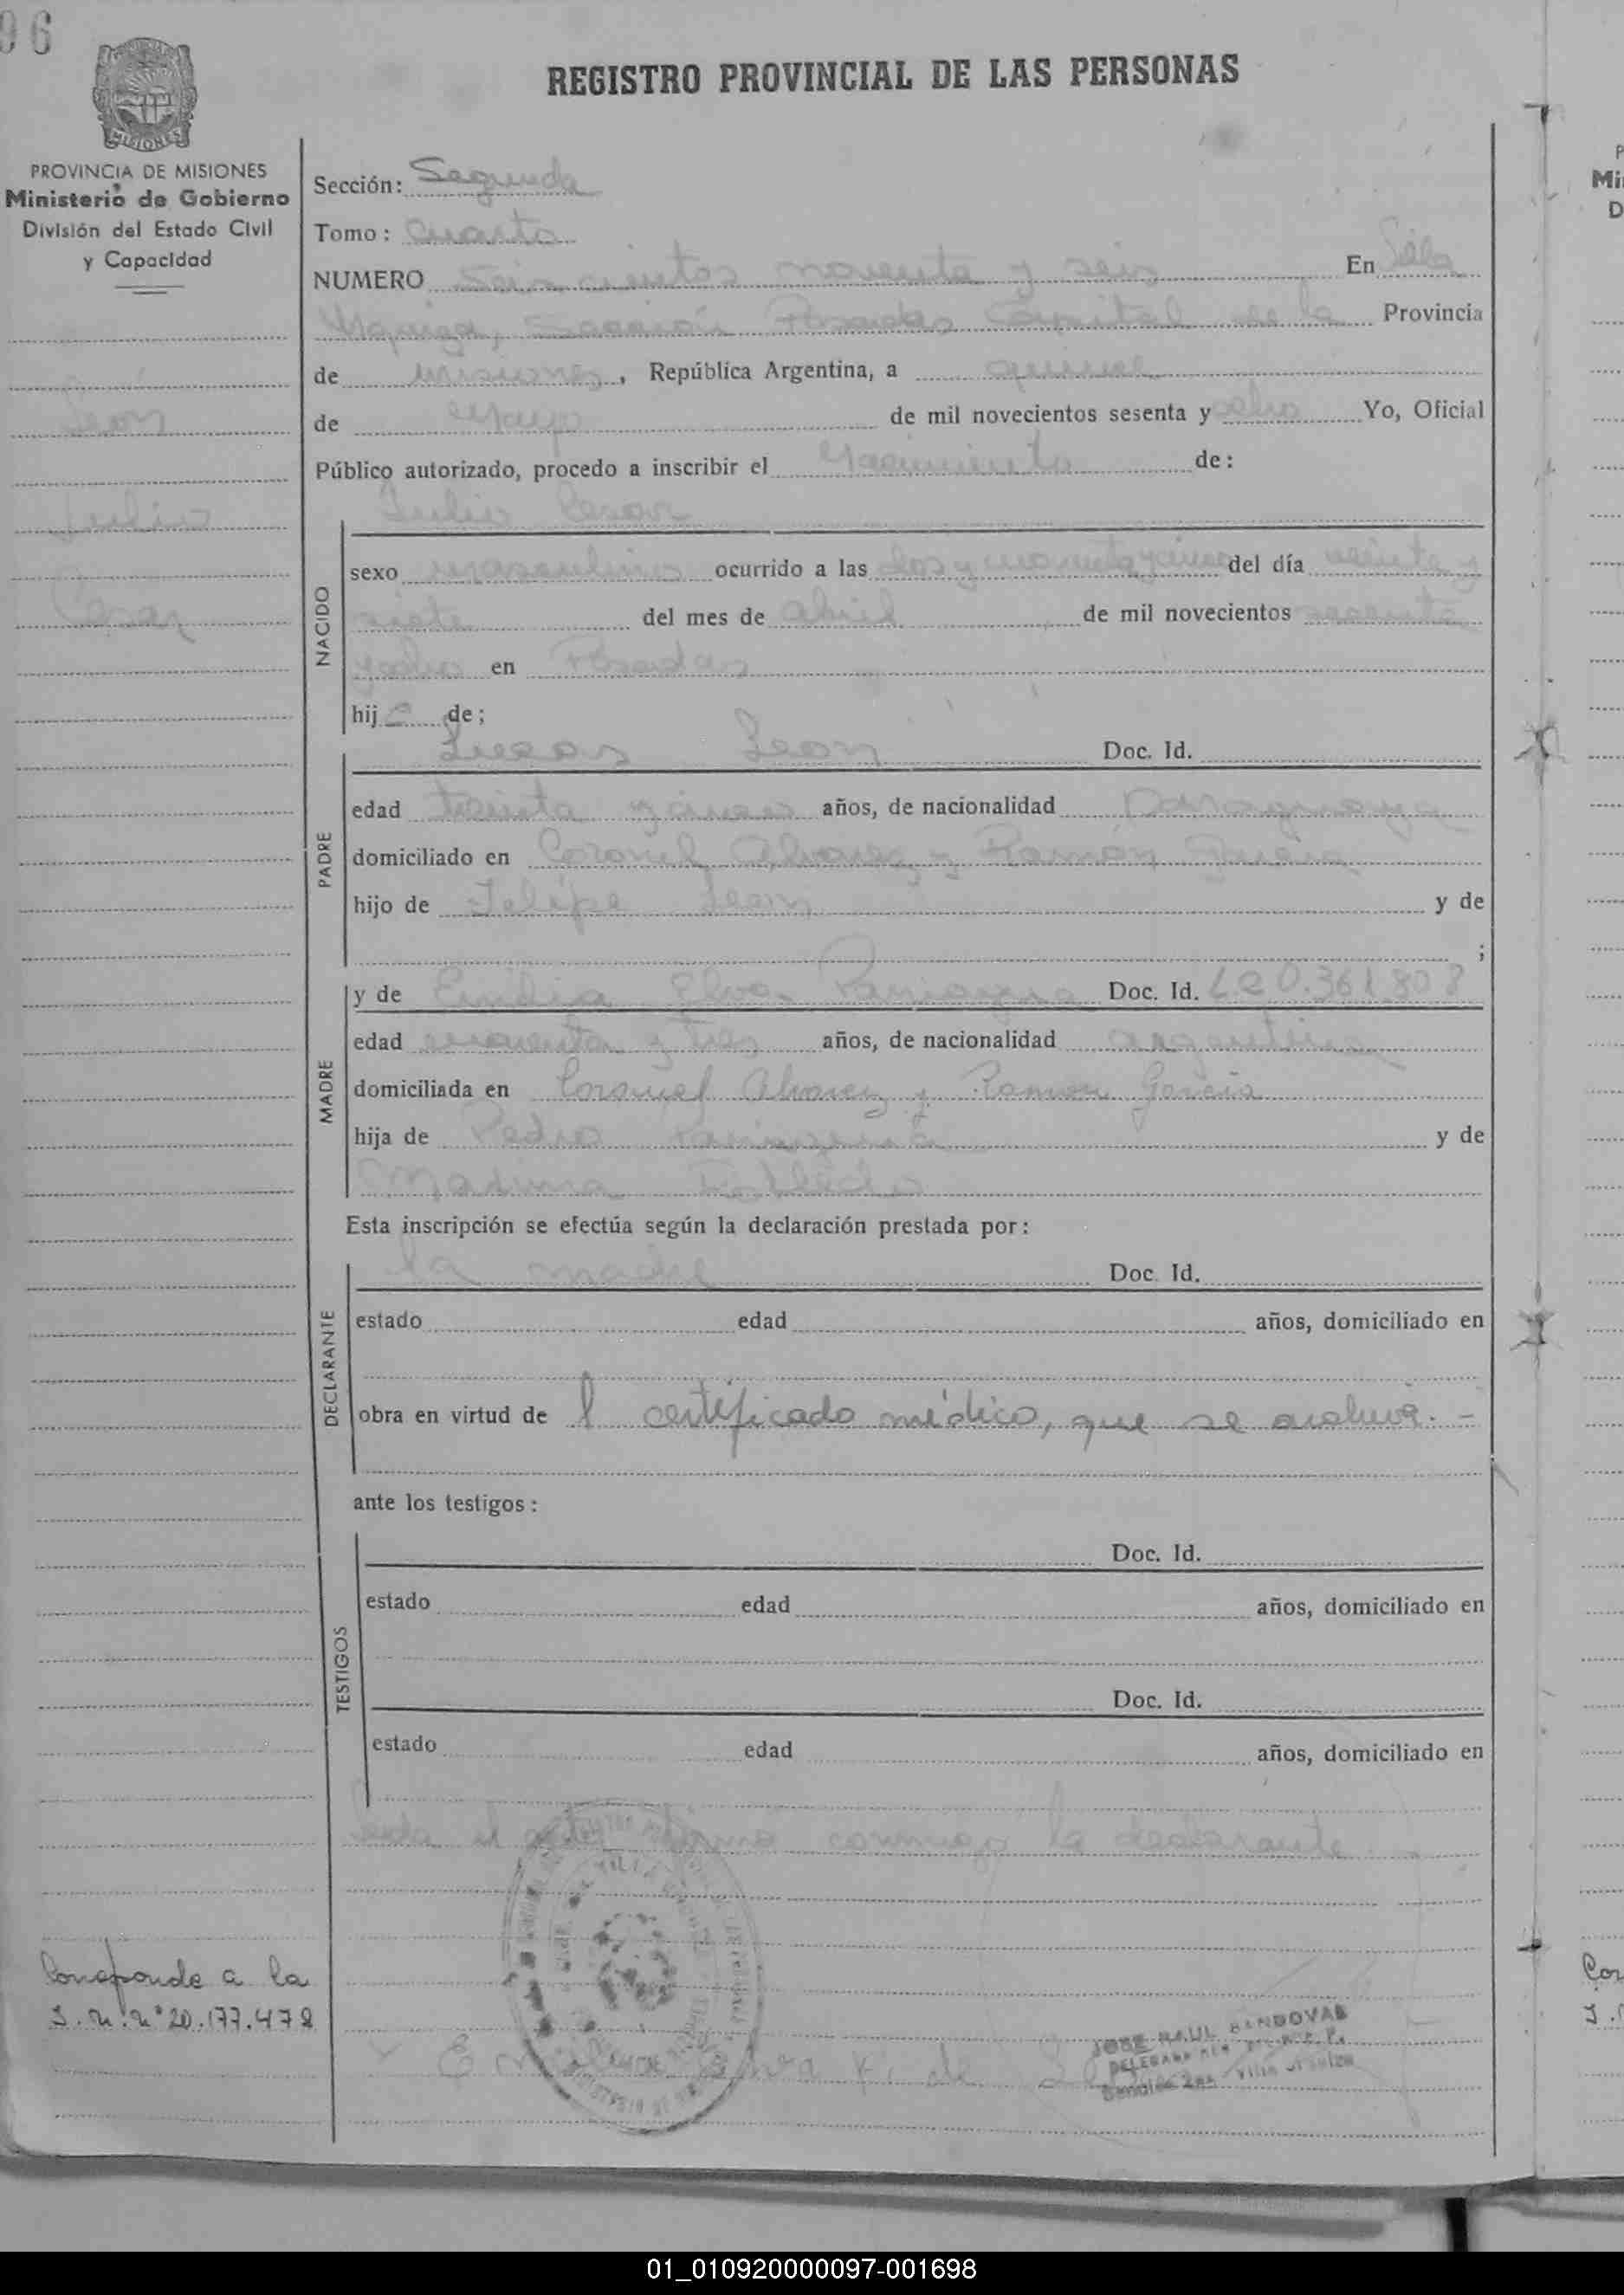 96
MISIONES
PROVINCIA DE MISIONES
Ministerio de Gobierno
División del Estado Civil
y Capacidad
Leon
Julio
Cesar
REGISTRO PROVINCIAL DE LAS PERSONAS
Sección: Segunda
Tomo: Cuarto
NUMERO Seiscientos noventa y seis En Villa
Urquiza, Sección Posadas Capital de la Provincia
de Misiones, República Argentina, a quince
de Mayo de mil novecientos sesenta y ocho Yo, Oficial
Público autorizado, procedo a inscribir el Nacimiento de:
Julio Cesar
NACIDO
sexo masculino ocurrido a las dos y cuarenta y cinco del día veinte y
siete del mes de abril de mil novecientos sesenta
y ocho en Posadas
hijo de;
PADRE
Lucas Leon Doc. Id.
edad treinta y cinco años, de nacionalidad paraguaya
domiciliado en Coronel Alvarez y Ramón García
hijo de Felipe Leon y de
;
MADRE
y de Emilia Elva Paniagua Doc. Id. L.C 0.361.808
edad cuarenta y tres años, de nacionalidad argentina
domiciliada en Coronel Alvarez y Ramon Garcia
hija de Pedro Paniagua y de
Maxima Robledo
Esta inscripción se efectúa según la declaración prestada por:
DECLARANTE
la madre Doc. Id.
estado edad años, domiciliado en
obra en virtud de l certificado médico, que se archiva. -
ante los testigos:
TESTIGOS
Doc. Id.
estado edad años, domiciliado en
Doc. Id.
estado edad años, domiciliado en
Leida el acta, firma conmigo la declarante
Corresponde a la
I. N. N° 20.177.472
Emilia Elva P. de
JOSE RAUL SANDOVAL
01_010920000097-001698